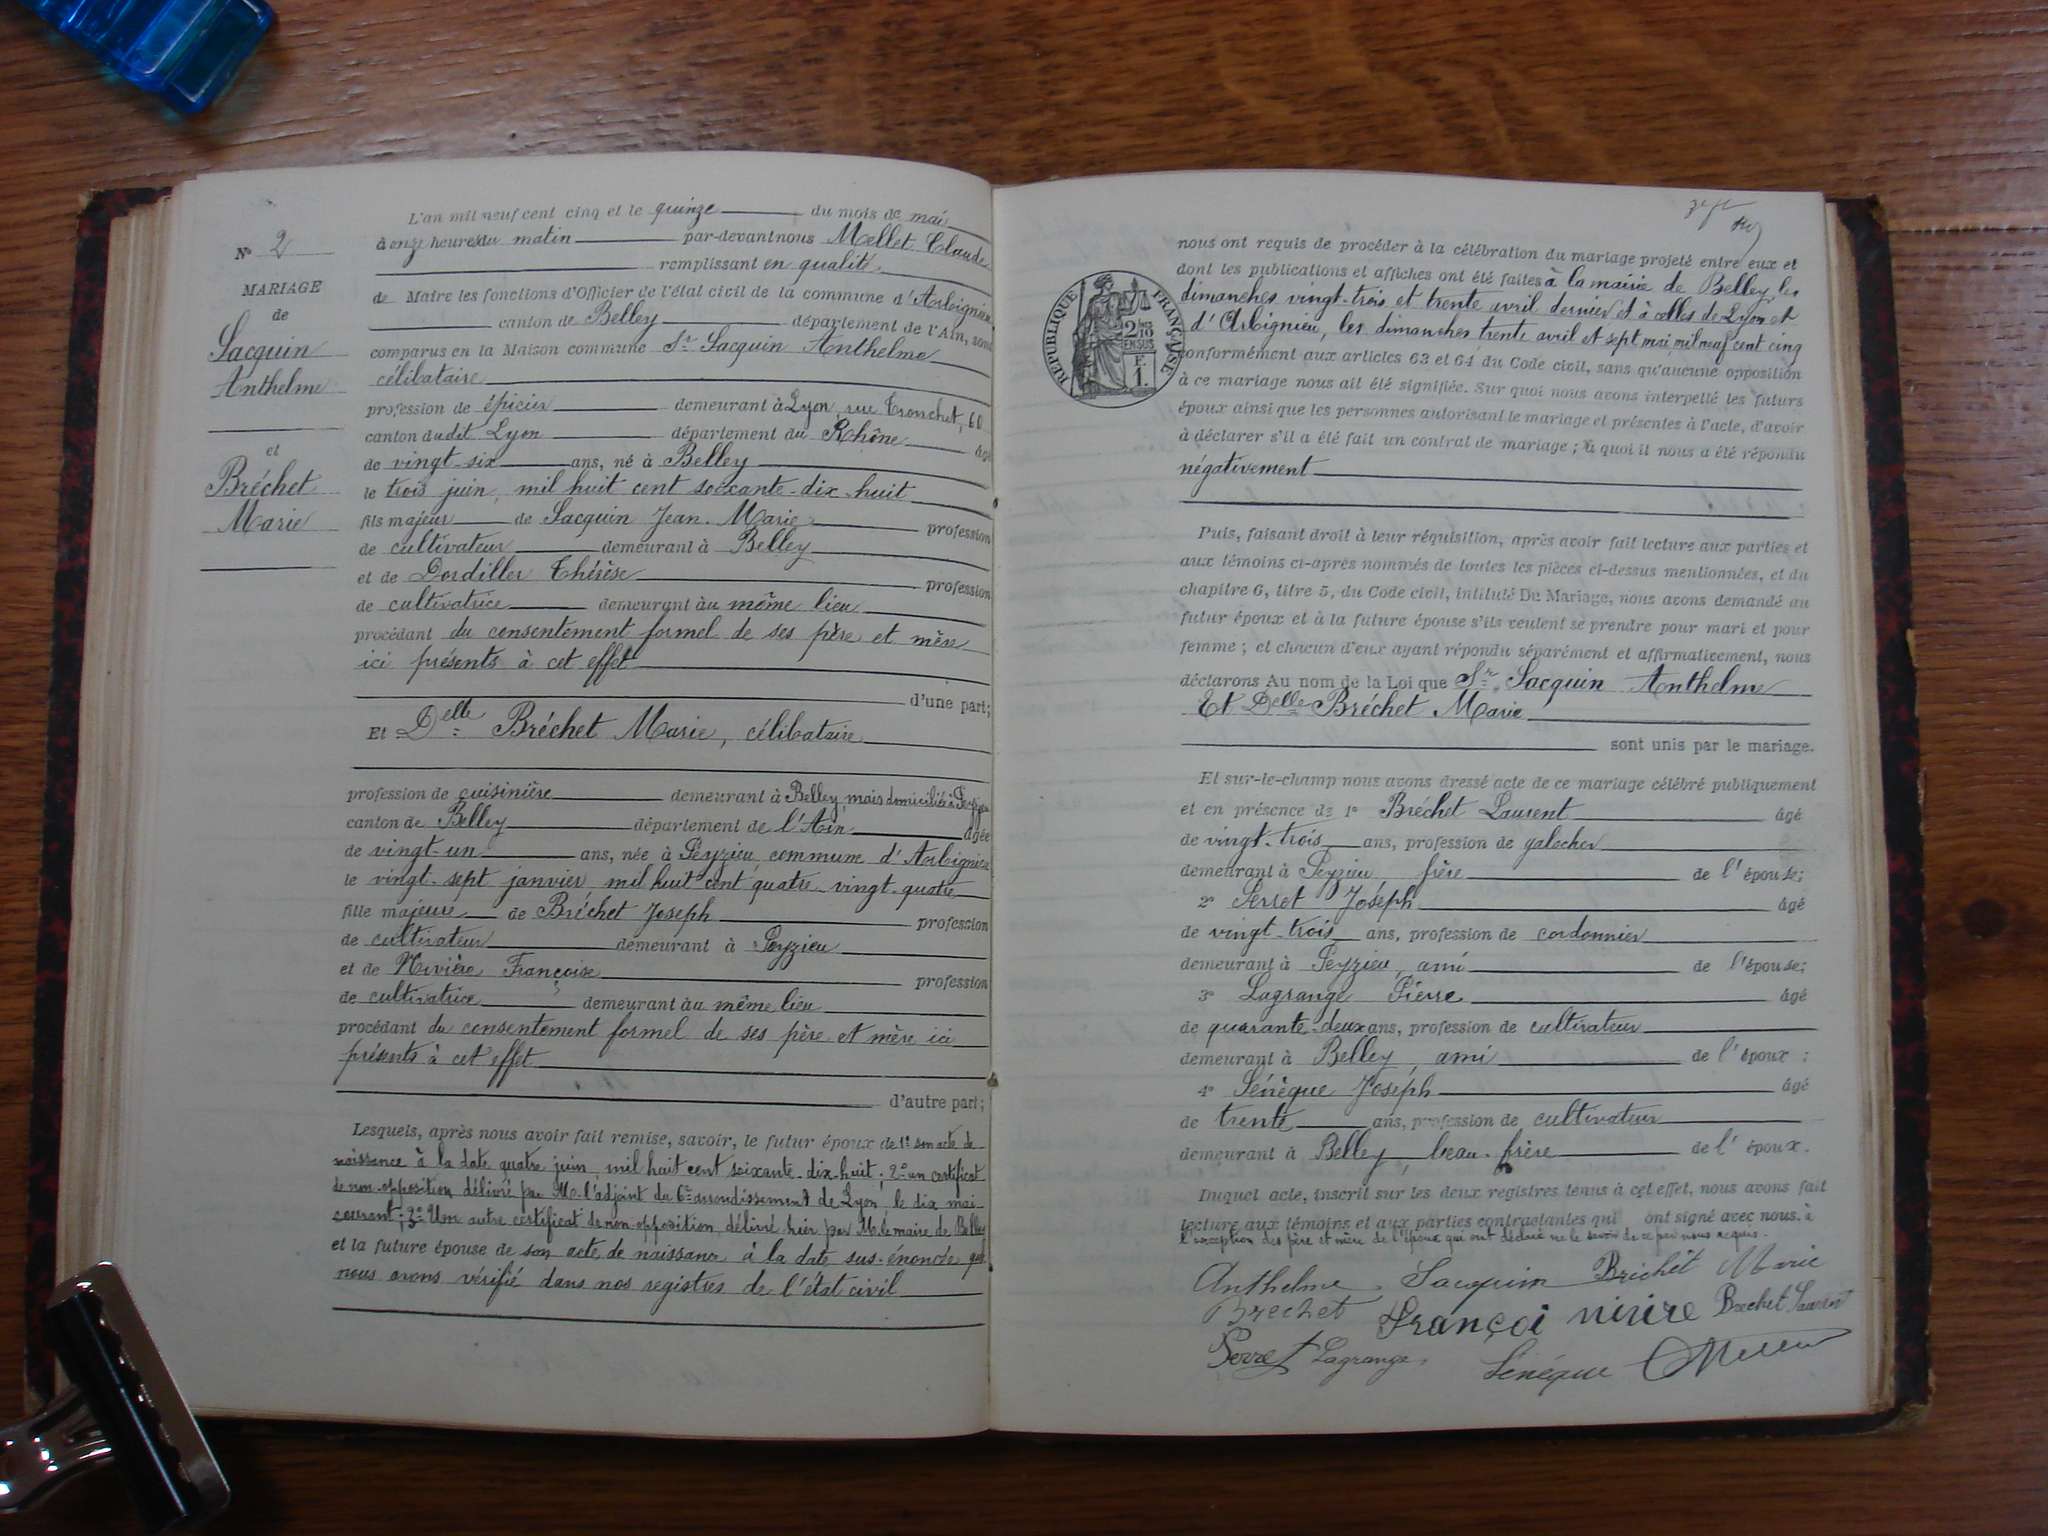 N° 2
MARIAGE
de
Sacquin
Anthelme
et
Bréchet
Marie
L'an mil neuf cent cinq et le quinze du mois de mai
à onze heures du matin par-devant nous Mellet Claude
remplissant en qualité
de Maire les fonctions d'Officier de l'état civil de la commune d'Arbignieu
canton de Belley département de l'Ain, sont
comparus en la Maison commune Sr Sacquin Anthelme
célibataire
profession de épicier demeurant à Lyon, rue Tronchet, 60
canton dudit Lyon département du Rhône âgé
de vingt-six ans, né à Belley
le trois juin, mil huit cent soixante-dix-huit
fils majeur de Sacquin Jean-Marie profession
de cultivateur demeurant à Belley
et de Dordiller Thérèse profession
de cultivatrice demeurant au même lieu
procédant du consentement formel de ses père et mère
ici présents à cet effet
d'une part;
Et Delle Bréchet Marie, célibataire
profession de cuisinière demeurant à Belley, mais domiciliée à Peyzieu
canton de Belley département de l'Ain âgée
de vingt-un ans, née à Peyzieu commune d'Arbignieu
le vingt-sept janvier mil huit cent quatre-vingt-quatre
fille majeure de Bréchet Joseph profession
de cultivateur demeurant à Peyzieu
et de Nivière Françoise profession
de cultivatrice demeurant au même lieu
procédant du consentement formel de ses père et mère ici
présents à cet effet
d'autre part;
Lesquels, après nous avoir fait remise, savoir, le futur époux de 1° son acte de
naissance à la date quatre juin, mil huit cent soixante-dix-huit; 2° un certificat
de non-opposition délivré par M. l'adjoint du 6e arrondissement de Lyon, le dix mai
courant; 3° Un autre certificat de non-opposition délivré hier par M. le maire de Belley
et la future épouse de son acte de naissance à la date sus-énoncée que
nous avons vérifié dans nos registres de l'état civil
RÉPUBLIQUE FRANÇAISE
2/10
EN SUS
F.
1.
nous ont requis de procéder à la célébration du mariage projeté entre eux et
dont les publications et affiches ont été faites à la mairie de Belley, les
dimanches vingt-trois et trente avril dernier et à celles de Lyon et
d'Arbignieu, les dimanches trente avril et sept mai, mil neuf cent cinq
conformément aux articles 63 et 64 du Code civil, sans qu'aucune opposition
à ce mariage nous ait été signifiée. Sur quoi nous avons interpellé les futurs
époux ainsi que les personnes autorisant le mariage et présentes à l'acte, d'avoir
à déclarer s'il a été fait un contrat de mariage; à quoi il nous a été répondu
négativement
Puis, faisant droit à leur réquisition, après avoir fait lecture aux parties et
aux témoins ci-après nommés de toutes les pièces ci-dessus mentionnées, et du
chapitre 6, titre 5, du Code civil, intitulé Du Mariage, nous avons demandé au
futur époux et à la future épouse s'ils veulent se prendre pour mari et pour
femme; et chacun d'eux ayant répondu séparément et affirmativement, nous
déclarons Au nom de la Loi que Sr Sacquin Anthelme
Et Delle Bréchet Marie
sont unis par le mariage.
Et sur-le-champ nous avons dressé acte de ce mariage célébré publiquement
et en présence de 1° Bréchet Laurent âgé
de vingt-trois ans, profession de galocher
demeurant à Peyzieu, frère de l'épouse;
2° Perret Joseph âgé
de vingt-trois ans, profession de cordonnier
demeurant à Peyzieu, ami de l'épouse;
3° Lagrange Pierre âgé
de quarante-deux ans, profession de cultivateur
demeurant à Belley, ami de l'époux;
4° Sénèque Joseph âgé
de trente ans, profession de cultivateur
demeurant à Belley, beau-frère de l'époux.
Duquel acte, inscrit sur les deux registres tenus à cet effet, nous avons fait
lecture aux témoins et aux parties contractantes qui ont signé avec nous à
l'exception des père et mère de l'époux qui ont déclaré ne le savoir de ce par nous requis.
Anthelme Sacquin Bréchet Marie
Brechet Françoi nivire Brechet Laurent
Perret Lagrange Sénèque Mellet